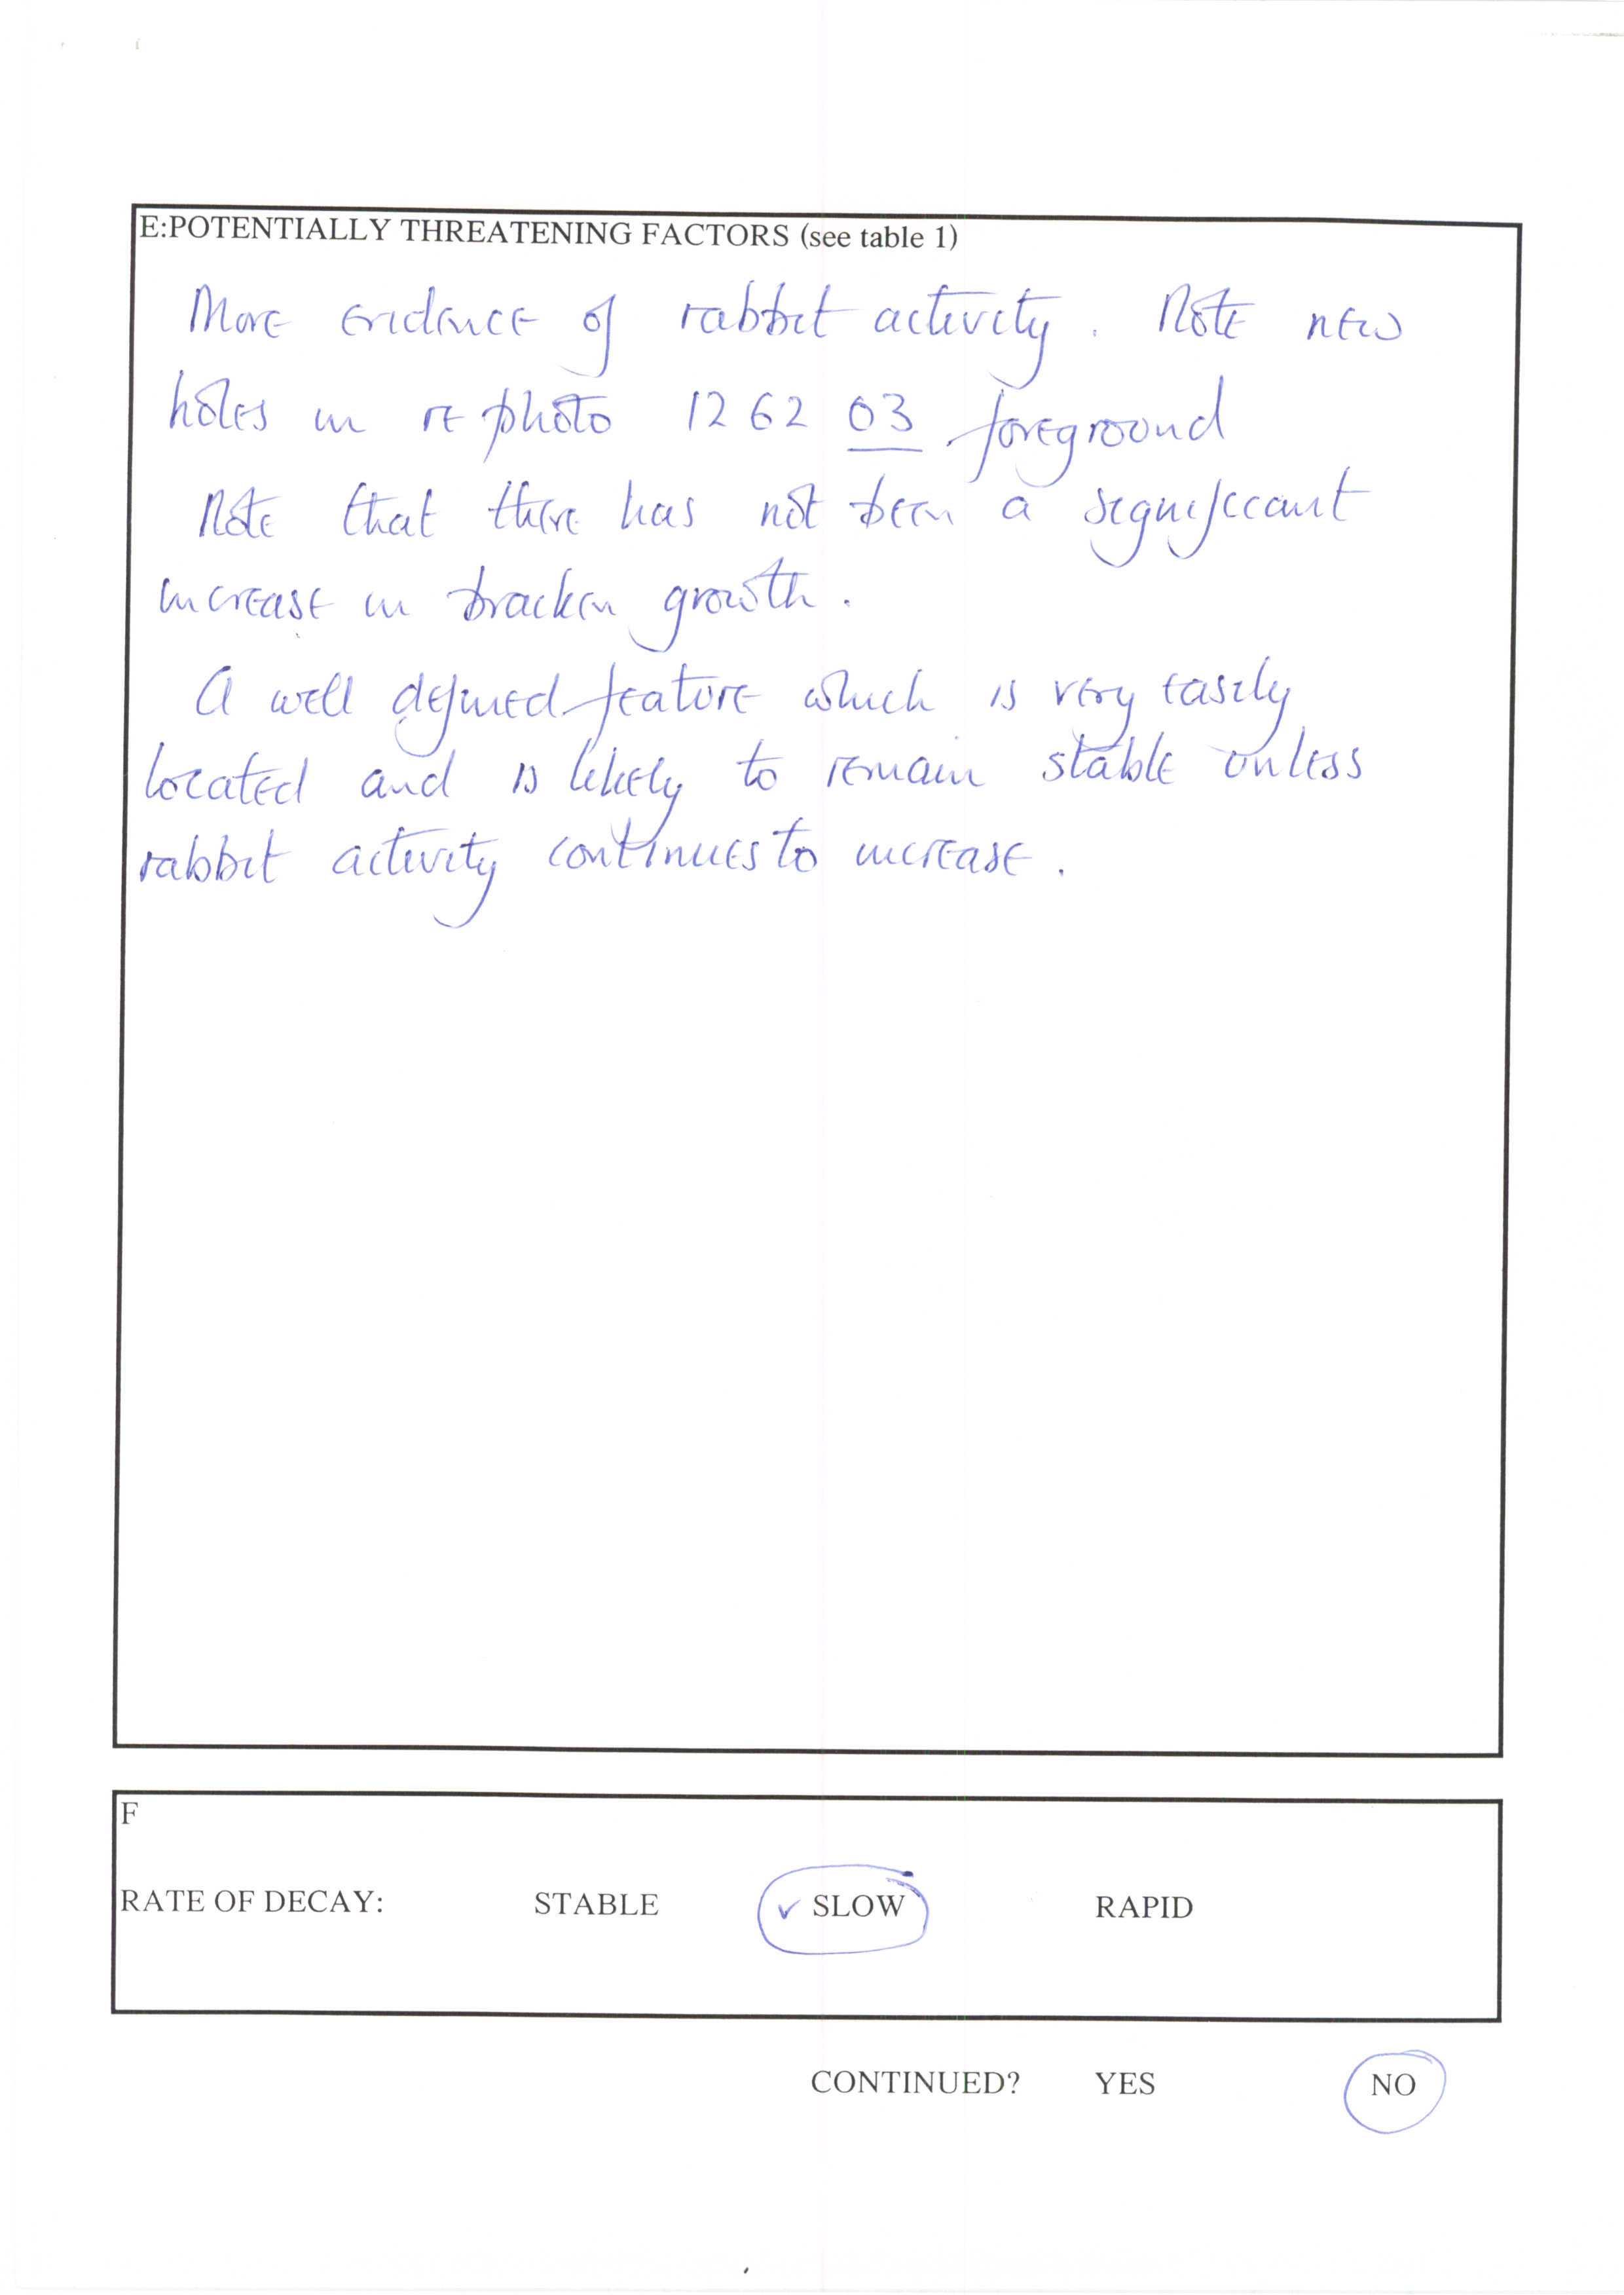 E:POTENTIALLY THREATENING FACTORS (see table 1)
More evidence of rabbit activity. Note new
holes in re photo 12 62 03 foreground
Note that there has not been a significant
increase in bracken growth.
A well defined feature which is very easily
located and is likely to remain stable unless
rabbit activity continues to increase.
F
RATE OF DECAY: STABLE ✓ SLOW RAPID
CONTINUED? YES NO